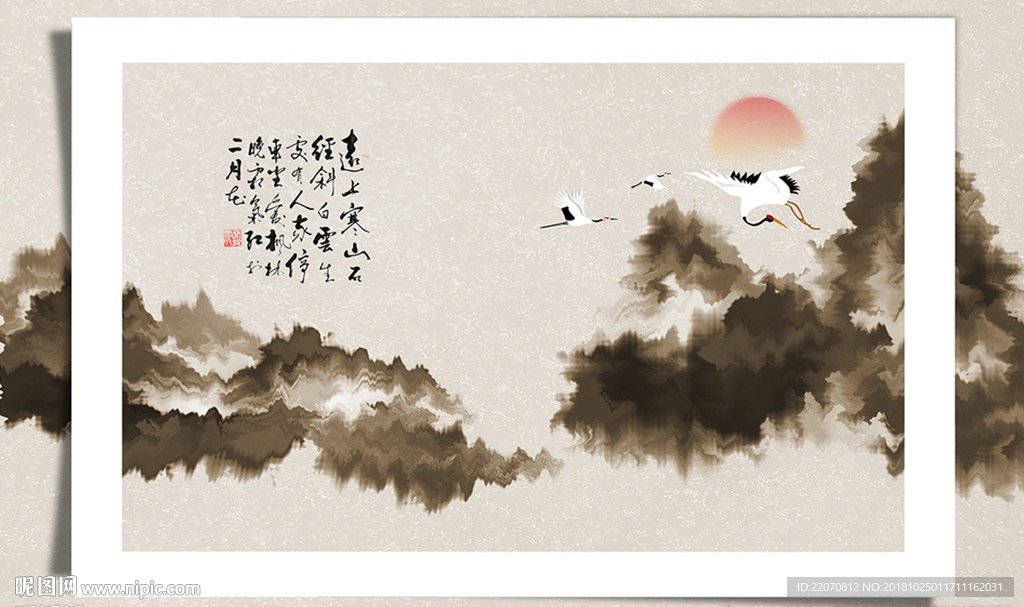 遠上寒山石
經斜白雲生
處有人家停
車坐愛楓林
晚霜氣紅於
二月花
昵图网 www.nipic.com
ID:22070812 NO:20181025011711162031